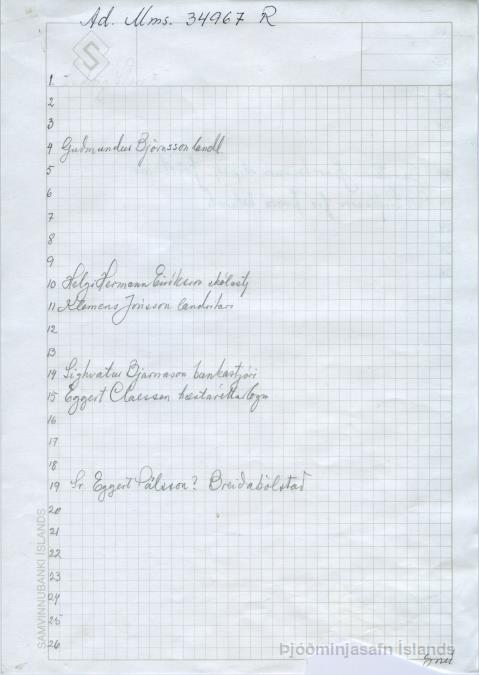 Ad. Mms. 34967 R
1
2
3
4 Guðmundur Björnsson landl
5
6
7
8
9
10 Helgi Hermann Eiríksson skólastj
11 Klemens Jónsson landritari
12
13
14 Sighvatur Bjarnason bankastjóri
15 Eggert Claessen hæstaréttarlögm
16
17
18
19 Sr. Eggert Pálsson? Breiðabólstað
20
21
22
23
24
25
26
SAMVINNUBANKI ÍSLANDS
Þjóðminjasafn Íslands